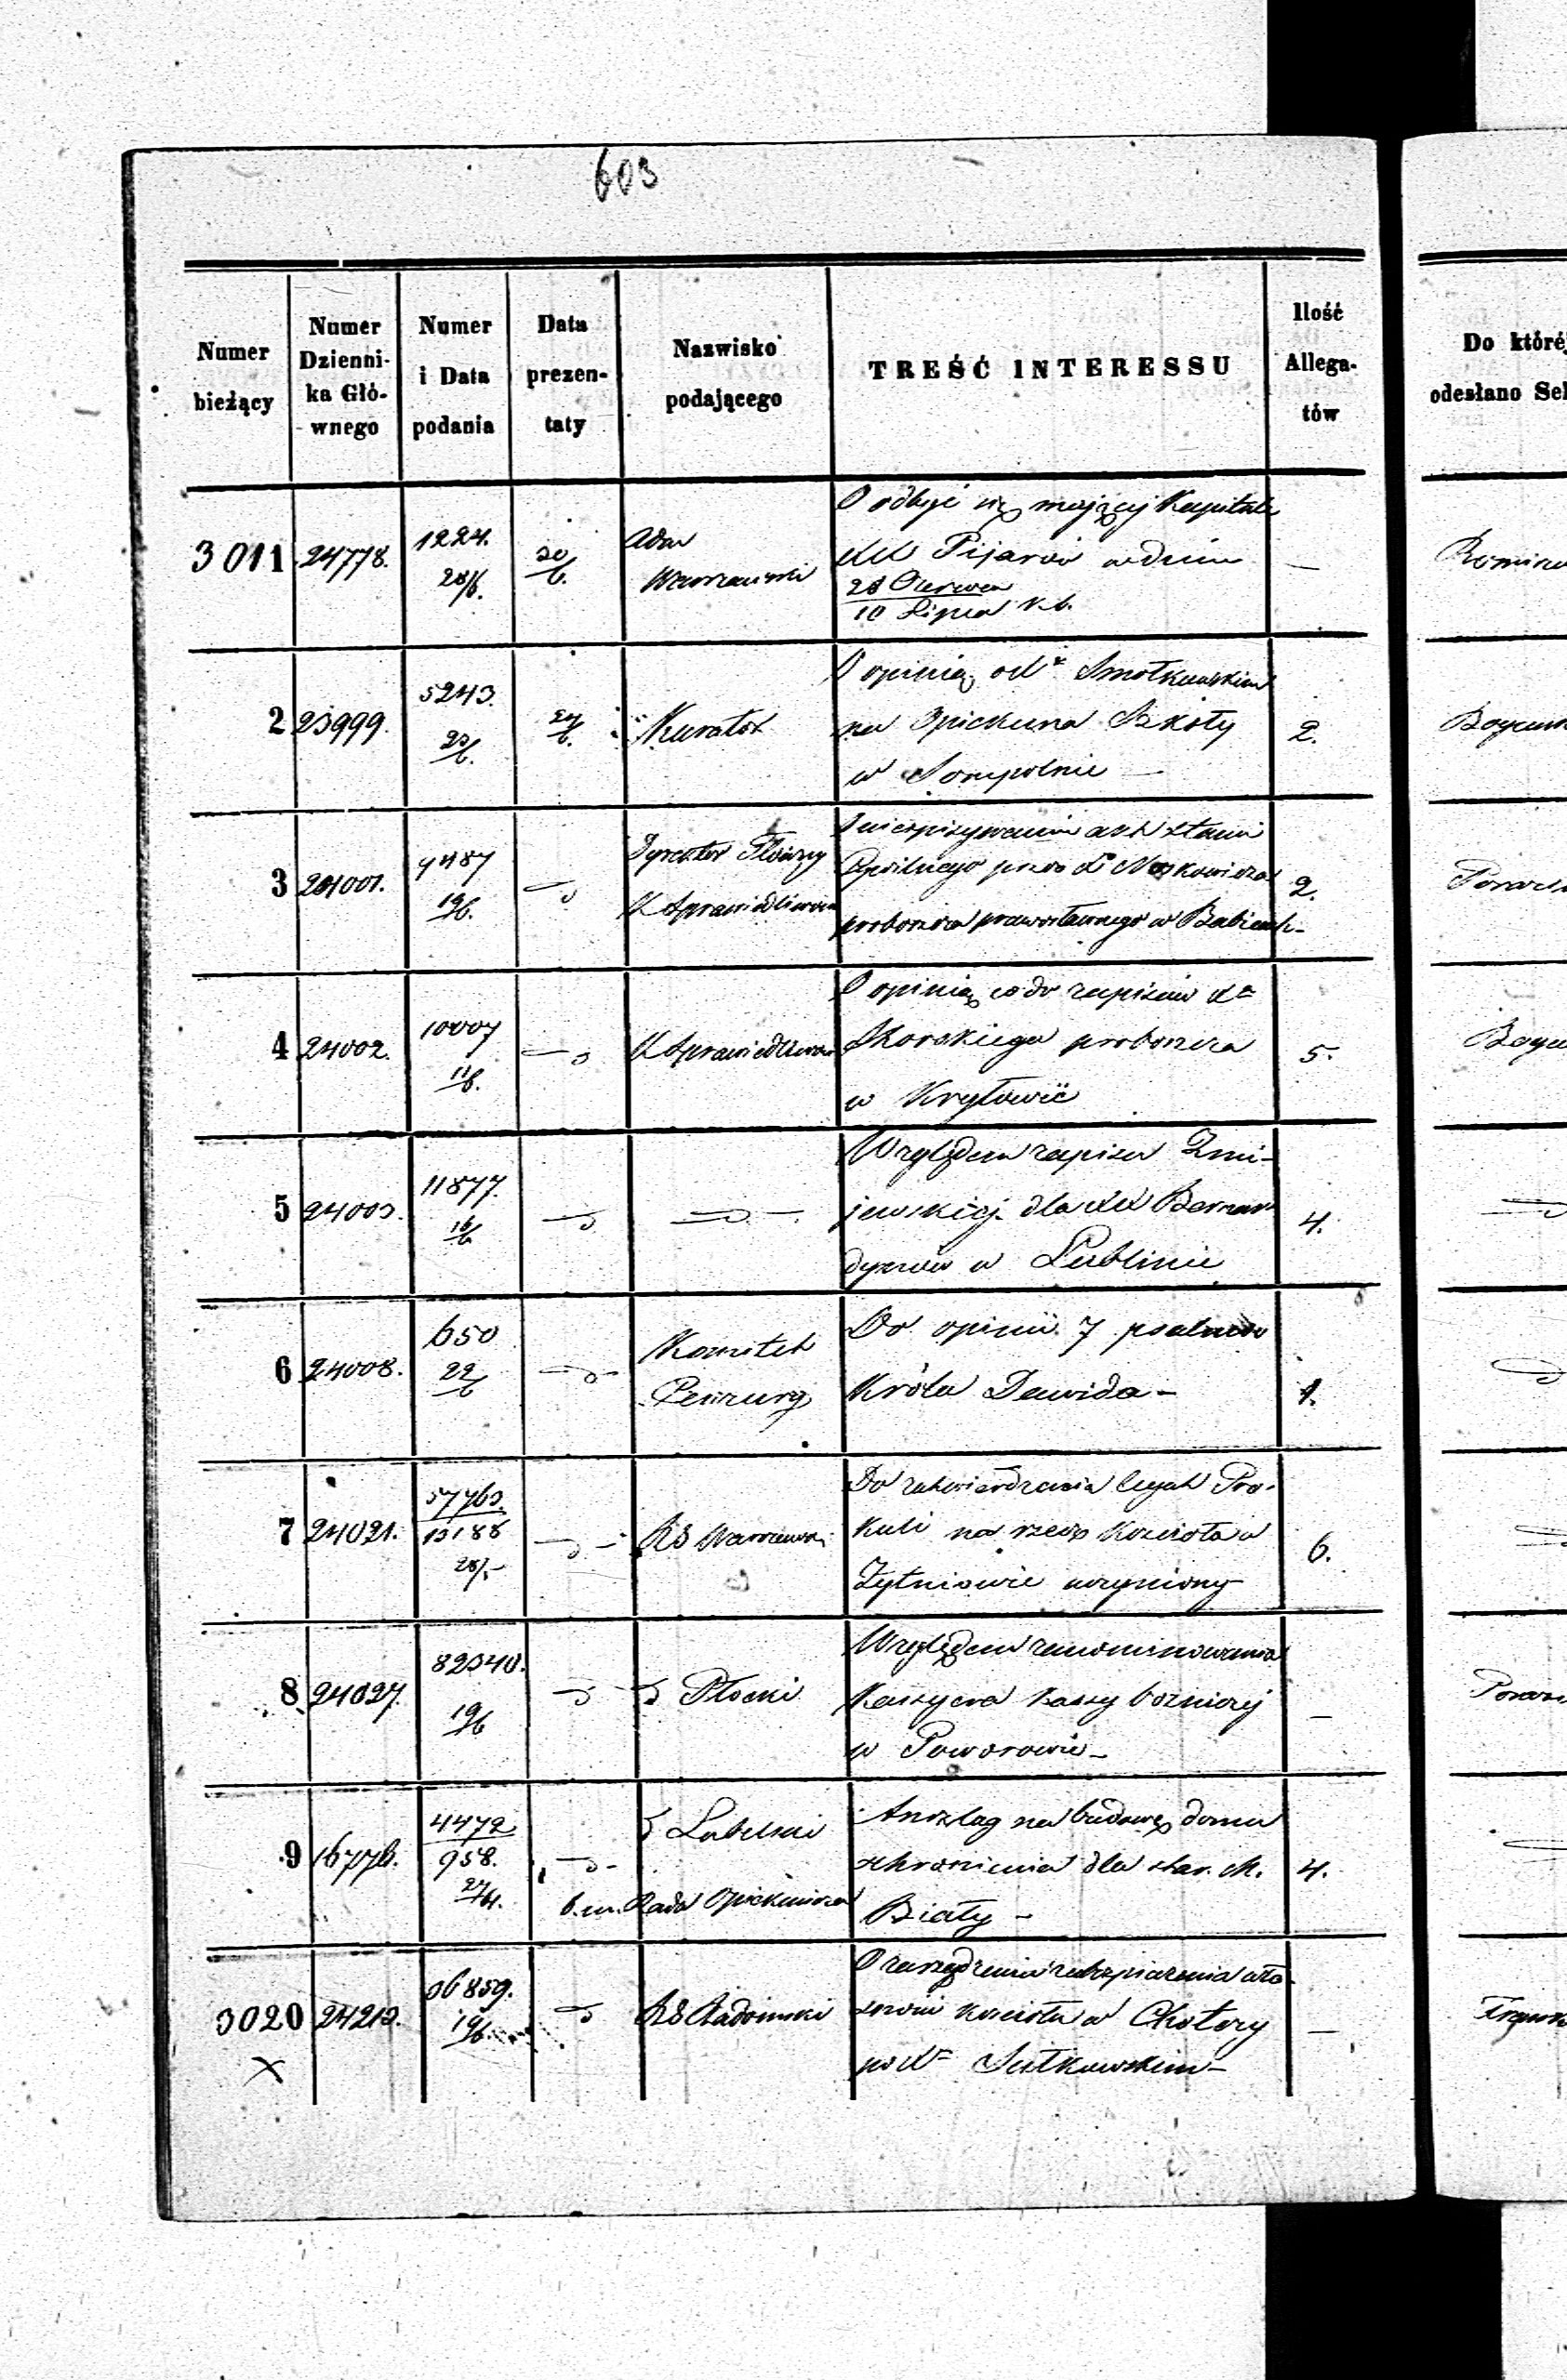 603
Numer bieżący
Numer Dzienni- ka Głó- wnego
Numer i Data podania
Data prezen- taty
Nazwisko podającego
TREŚĆ INTERESSU
Ilość Allega- tów
Do któréj
odesłano
3011 24778. 1224. 28/6. 20/6. Adm Warszawski
O odbyć się mającej Kapitule
XX Pijarów w dniu
28 Czerwca
10 Lipca r.b.
—
2 23999. 5243. 23/6. 24/6. Kurator
O opinią o Xº Smołkowskim
na Opiekuna Szkoły
w Sompolnie —
2.
3 24001. 9487 19/6. Dyrektor Główny
K Sprawiedliwości
O niespisywaniu akt stanu
Cywilnego przez Xº Noskowicza
proboszcza prawosławnego w Babicach -
2.
4 24002. 10007 11/6. K Sprawiedliwości
O opinią co do zapisów Xª
Skorskiego proboszcza
w Kryłowie
5.
5 24003. 11877. 16/6
Względem zapisu Żmi-
jewskiej dla XX Bernar-
dynów w Lublinie
4.
6 24008. 650 22/6 Komitet
Cenzury
Do opinii 7 psalmów
Króla Dawida -
1.
7 24021. 57763. 13188 20/- RG Warszaws.
Do zatwierdzenia legat Pra-
kuli na rzecz Kościoła w
Żytniowie uczyniony
6.
8 24027. 82340. 19/6 Płocki
Względem zanominowania
Kassyera kassy bożniczej
w Poworowie -
—
9 16776. 4472 958. 27/4. Lubelski
b.m. Rada Opiekuńcza
Anszlag na budowę domu
schronienia dla star. M.
Biały -
4.
3020 24213. 36859. 19/6 RG Radomski
O zarządzenie zabezpieczenia wła-
sności kościoła w Chotczy
po Xº Sułkowskim -
—
X